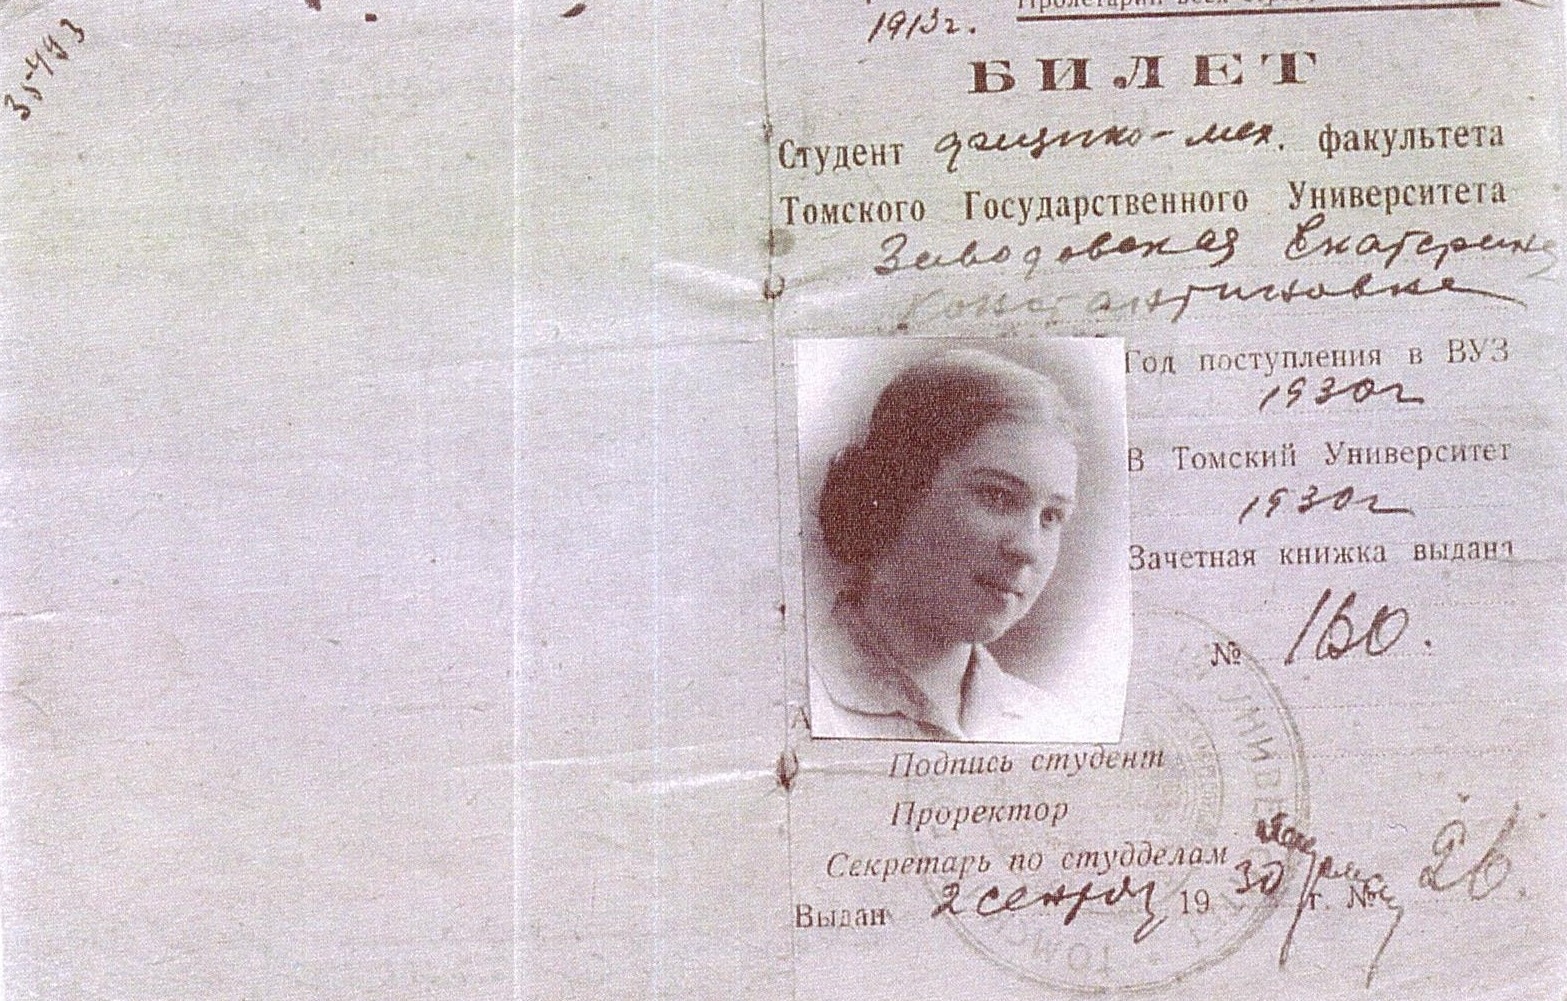 35493
1913г.
Пролетарии всех стран
БИЛЕТ
Студент физико-мех. факультета
Томского Государственного Университета
Заводовская Екатерина
Константиновна
Год поступления в ВУЗ
1930г
В Томский Университет
1930г
Зачетная книжка выдана
№ 160.
Подпись студент
Проректор
Секретарь по студделам
Выдан 2 сентяб 1930 г. № 26.